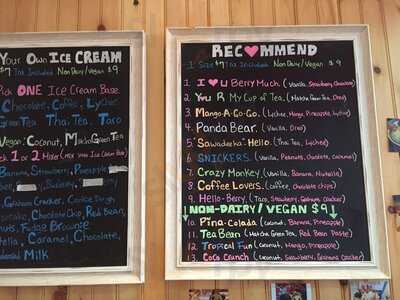 Your Own ICE CREAM
$7 Tax Included Non Dairy/Vegan $9
Pick ONE Ice Cream Base
Chocolate, Coffee, Lychee
Green Tea, Thai Tea, Taro
Vegan: Coconut, Matcha Green Tea
Pick 1 or 2 Mixer (mix with Ice Cream Base)
Banana, Strawberry, Pineapple
Graham Cracker, Cookie Dough
Chocolate Chip, Red Bean,
Nuts, Fudge Brownie
Caramel, Chocolate,
Milk
RECOMMEND
1 Size $7 Tax Included Non Dairy/Vegan $9
1. I ♥ U Berry Much. (Vanilla, Strawberry, Chocolate)
2. You R My Cup of Tea. (Matcha Green Tea, Oreo)
3. Mango-A-Go-Go. (Lychee, Mango, Pineapple, Lychee)
4. Panda Bear. (Vanilla, Oreo)
5. Sawadeeka Hello. (Thai Tea, Lychee)
6. SNICKERS. (Vanilla, Peanuts, Chocolate, Caramel)
7. Crazy Monkey. (Vanilla, Banana, Nutella)
8. Coffee Lovers. (Coffee, Chocolate Chips)
9. Hello-Berry. (Taro, Strawberry, Graham Cracker)
NON-DAIRY / VEGAN $9
10. Pina-Colada. (Coconut, Banana, Pineapple)
11. Tea Bean. (Matcha Green Tea, Red Bean Paste)
12. Tropical Fun. (Coconut, Mango, Pineapple)
13. CoCo Crunch. (Coconut, Strawberry, Graham Cracker)